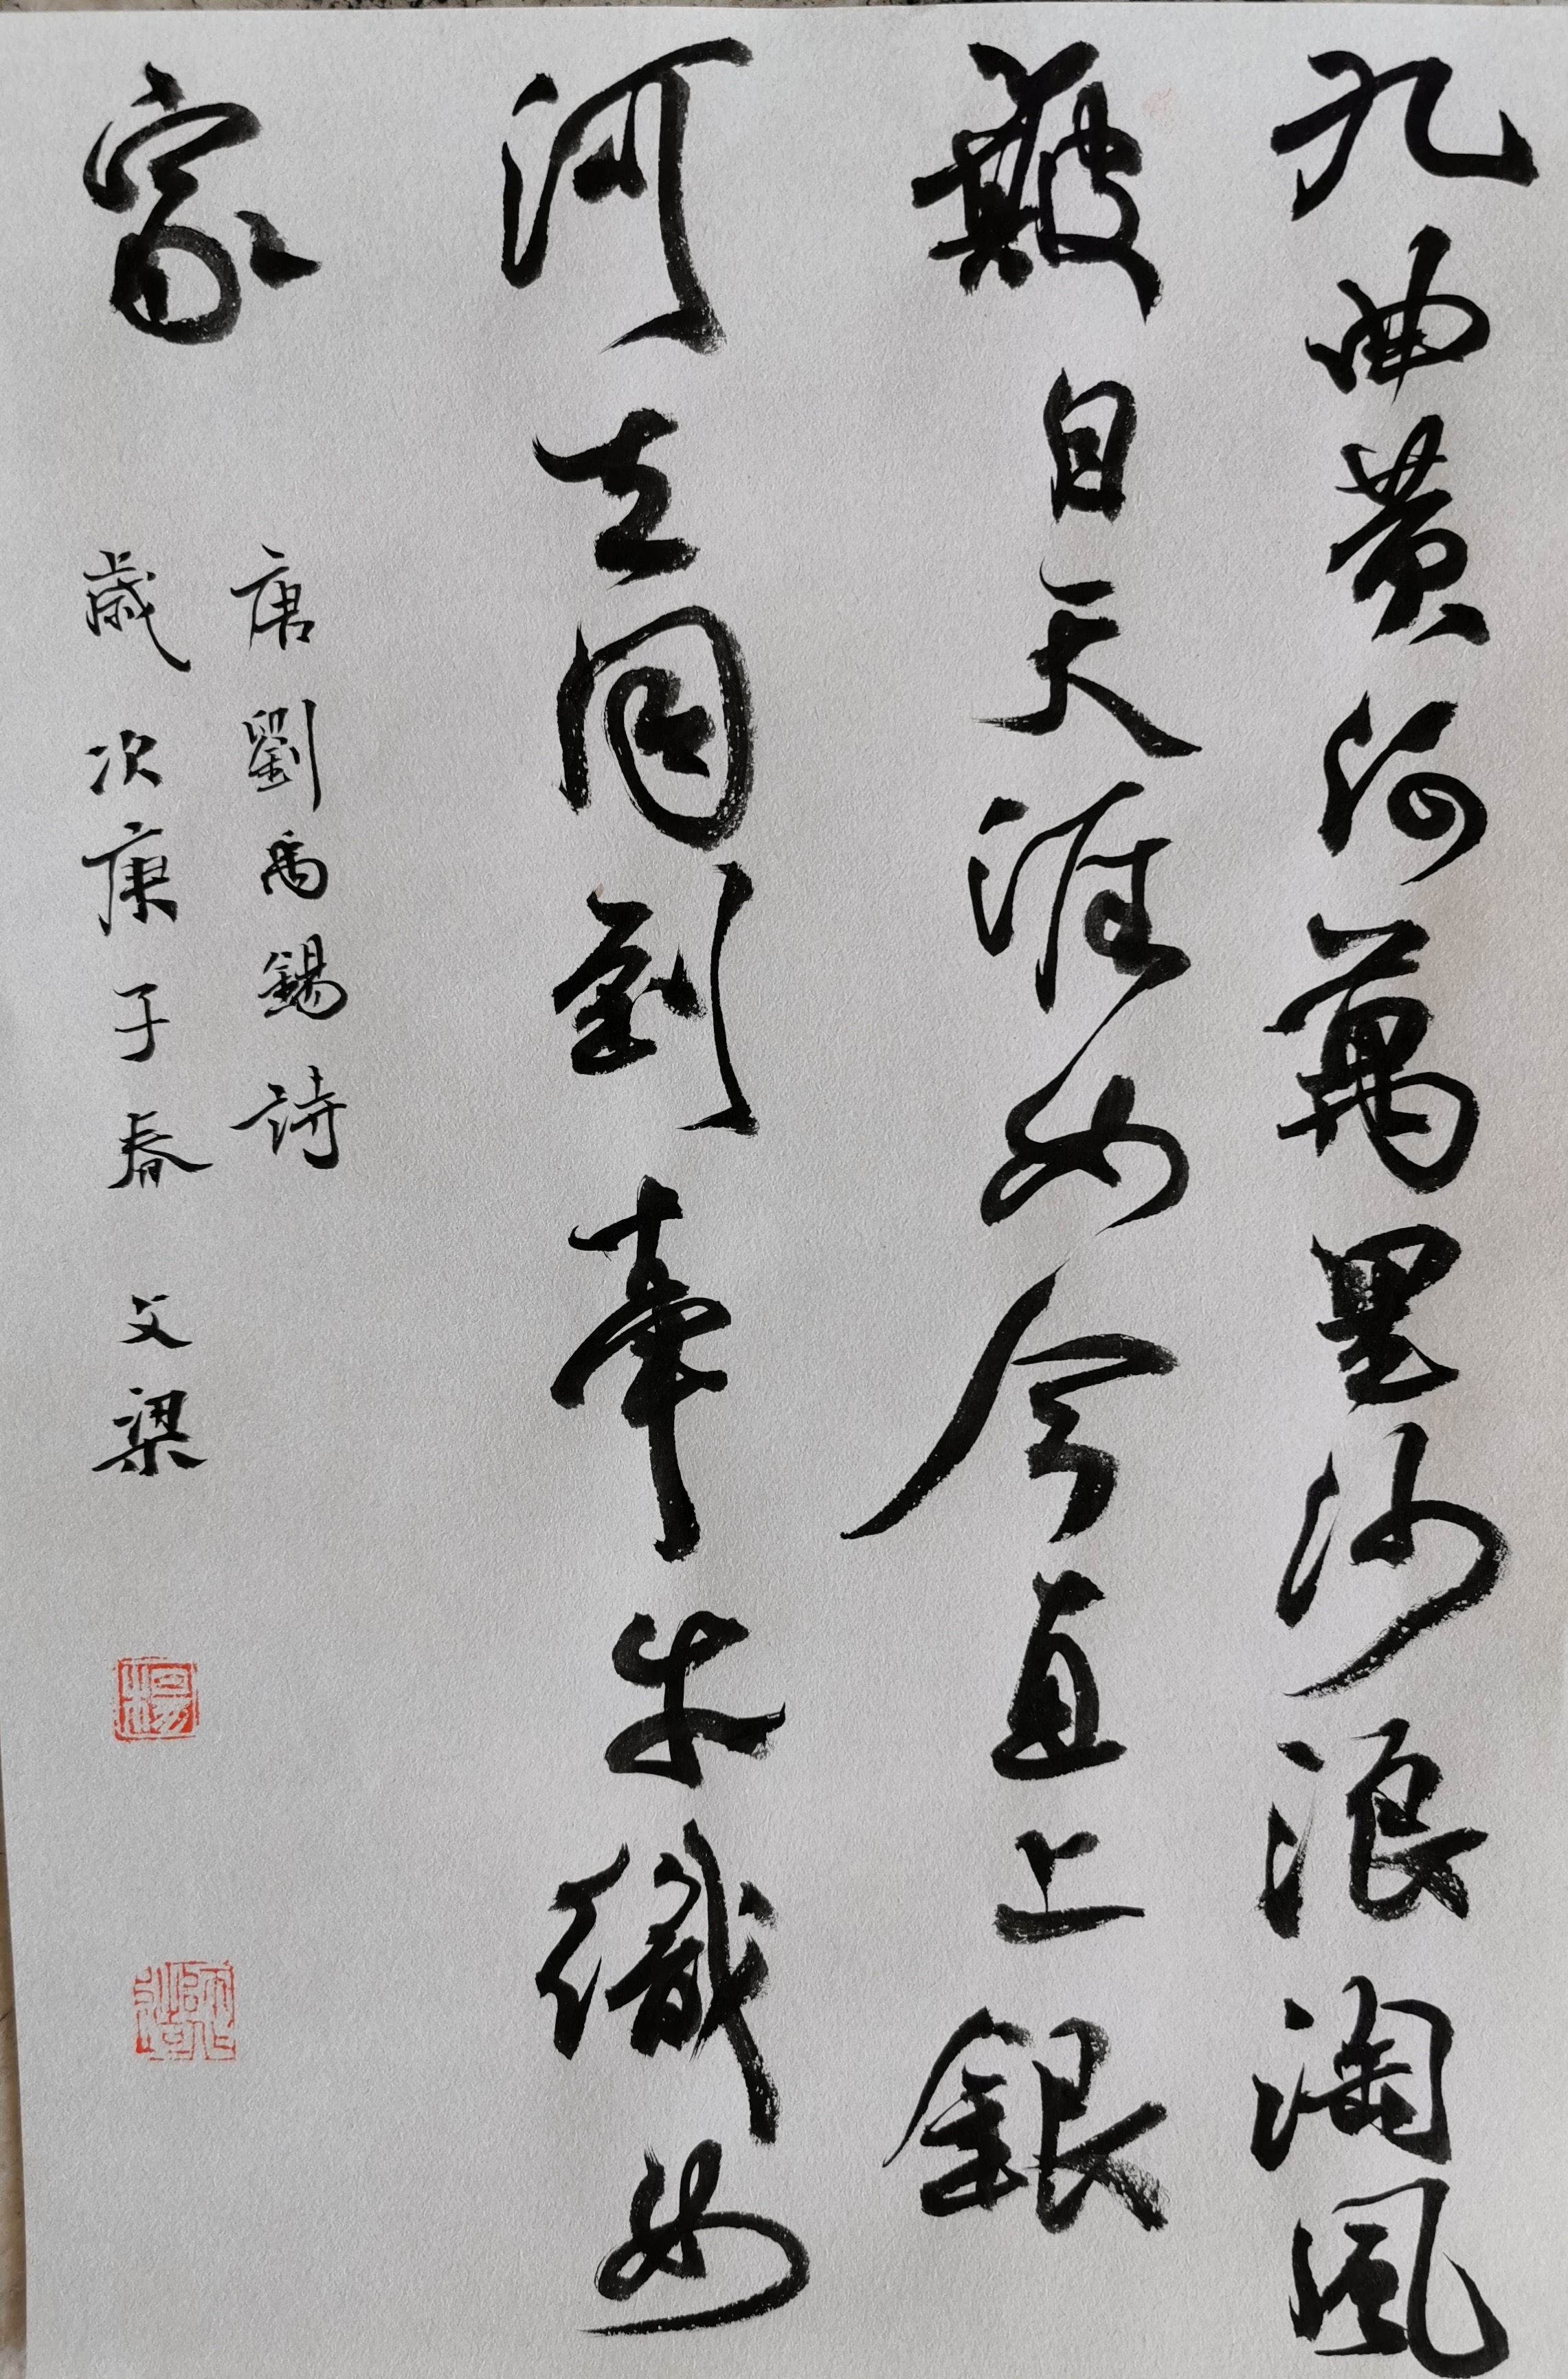 九曲黄河萬里沙浪淘風
簸自天涯如今直上銀
河去同到牽牛織女
家
唐劉禹錫詩
歲次庚子春 文梁
楊